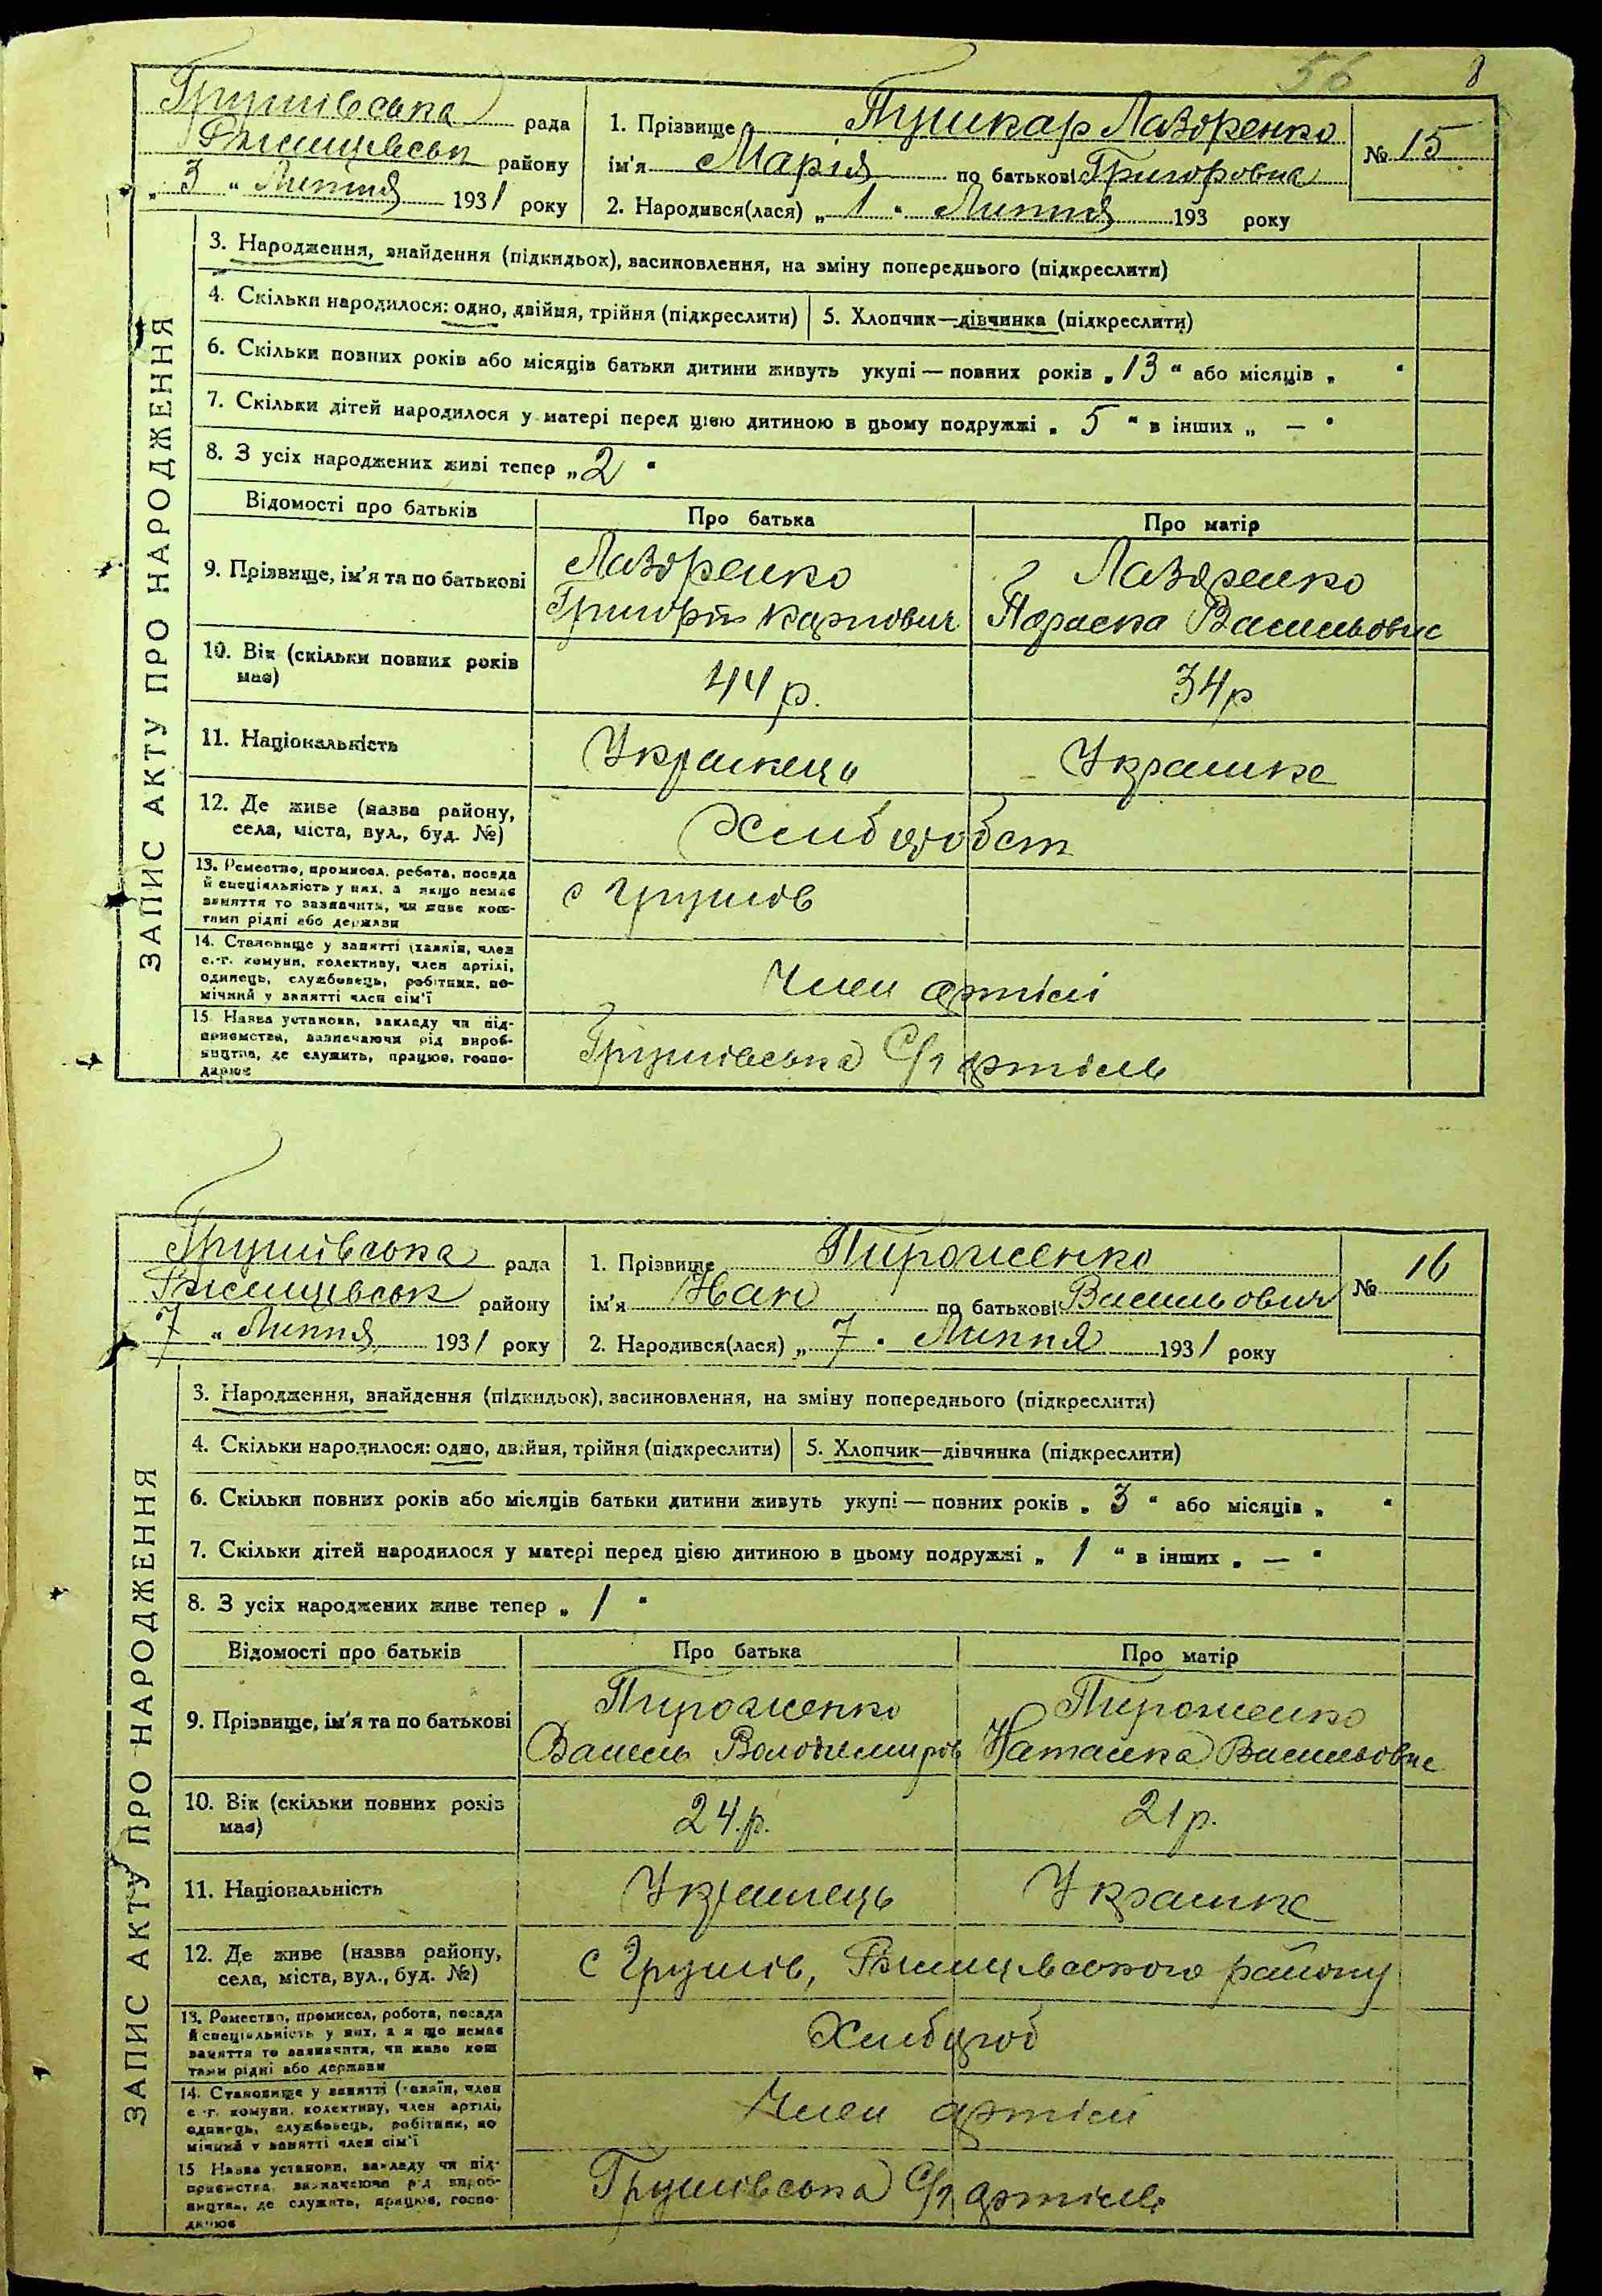 56 8
Грушівська рада
Ржищевськ району
„ 3 “ Липня 1931 року
1. Прізвище Пушкар Лазоренко
ім'я Марія по батькові Григоровна
2. Народився(лася) „ 1 “ Липня 193 року
№ 15
ЗАПИС АКТУ ПРО НАРОДЖЕННЯ
3. Народження, знайдення (підкидьок), засиновлення, на зміну попереднього (підкреслити)
4. Скільки народилося: одно, двійня, трійня (підкреслити) 5. Хлопчик—дівчинка (підкреслити)
6. Скільки повних років або місяців батьки дитини живуть укупі — повних років „ 13 “ або місяців „ “
7. Скільки дітей народилося у матері перед цією дитиною в цьому подружжі „ 5 “ в інших „ — “
8. З усіх народжених живі тепер „ 2 “
Відомості про батьків Про батька Про матір
9. Прізвище, ім'я та по батькові
Лазоренко
Григорій Карпович
Лазоренко
Параска Васильовна
10. Вік (скільки повних років
має)
44 р. 34 р
11. Національність Украинець Украинка
12. Де живе (назва району,
села, міста, вул., буд. №)
13. Ремество, промисел, робота, посада
й спеціяльність у них, а якщо немає
заняття то зазначити, чи живе кош-
тами рідні або держави
с Грушів
14. Становище у занятті (хазяїн, член
с.-г. комуни, колективу, член артілі,
одинець, службовець, робітник, по-
мічний у занятті член сім'ї
Член артілі
15. Назва установи, закладу чи під-
приємства, зазначаючи рід вироб-
ництва, де служить, працює, госпо-
дарює
Грушівська С/г артіль
Грушівська рада
Ржищевськ району
7 “ Липня 1931 року
1. Прізвище Пироженко
ім'я Іван по батькові Васильович
2. Народився(лася) „ 7 “ Липня 1931 року
№ 16
ЗАПИС АКТУ ПРО НАРОДЖЕННЯ
3. Народження, знайдення (підкидьок), засиновлення, на зміну попереднього (підкреслити)
4. Скільки народилося: одно, двійня, трійня (підкреслити) 5. Хлопчик—дівчинка (підкреслити)
6. Скільки повних років або місяців батьки дитини живуть укупі — повних років „ 3 “ або місяців „ “
7. Скільки дітей народилося у матері перед цією дитиною в цьому подружжі „ 1 “ в інших „ — “
8. З усіх народжених живе тепер „ 1 “
Відомості про батьків Про батька Про матір
9. Прізвище, ім'я та по батькові
Пироженко
Василь Володимиров
Пироженко
Наталка Васильовна
10. Вік (скільки повних років
має)
24.р. 21 р.
11. Національність Украинець Украинка
12. Де живе (назва району,
села, міста, вул., буд. №)
с Грушів, Ржищевського району
13. Ремество, промисел, робота, посада
й спеціяльність у них, а якщо немає
заняття то зазначити, чи живе кош
тами рідні або держави
Хлибороб
14. Становище у занятті (хазяїн, член
с.-г. комуни, колективу, член артілі,
одинець, службовець, робітник, по
мічний у занятті член сім'ї
Член артіли
15 Назва установи, закладу чи під-
приємства, зазначаючи рід вироб-
ництва, де служить, працює, госпо-
дарює
Грушівська С/г артіль